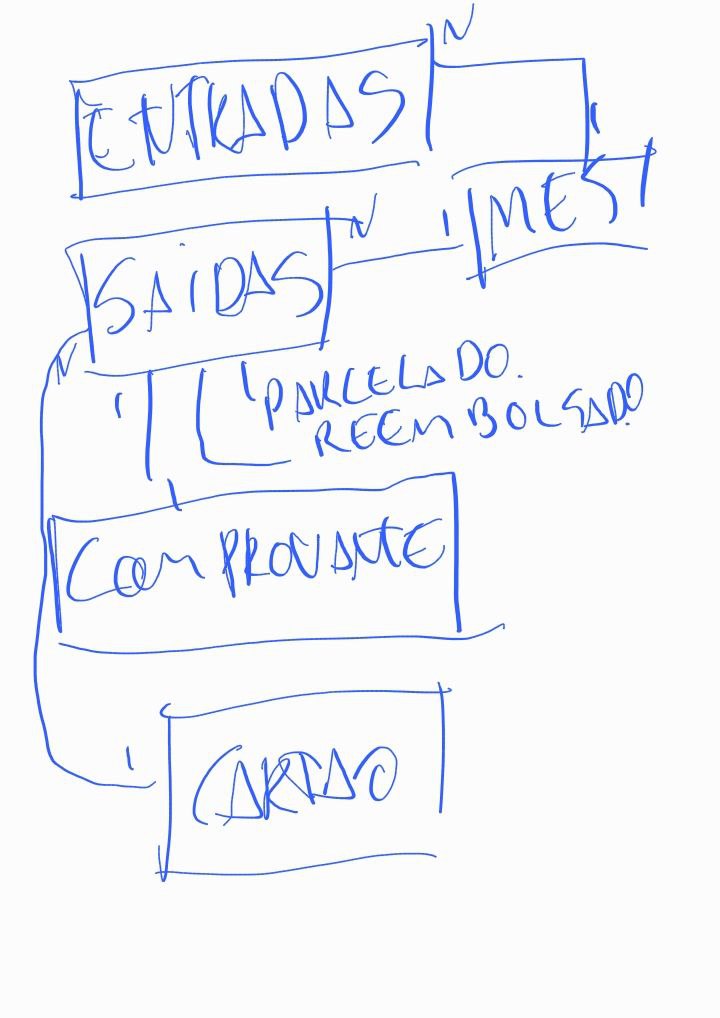 N
ENTRADAS
1
MES
N
1
SAÍDAS
N
1
PARCELADO.
REEMBOLSADO
1
COMPROVANTE
1
CARTAO